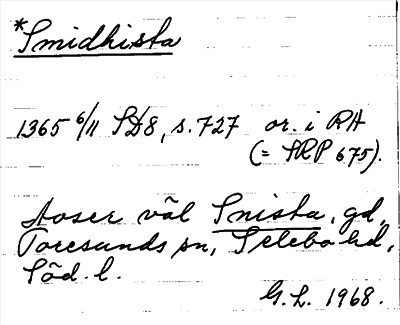 *Smidhista
1365 6/11 SD8, s. 727 or. i RA
(= SRP 675).
Avser väl Snista, gd,
Toresunds sn, Selebo hd,
Söd. l.
G.L. 1968.